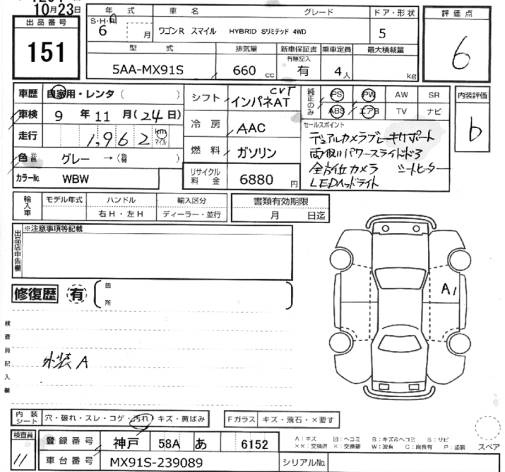 10月23日
出品番号
151
年式
S・H・R
6 月
車名
ワゴンR スマイル HYBRID Sリミテッド 4WD
グレード
ドア・形状
5
評価点
6
型式
5AA-MX91S
排気量
660 cc
新車保証書
有無記入
有
乗車定員
4人
最大積載量
kg
車歴 自家用・レンタ ( )
車検 9年 11月 (24日)
走行 1,962 km マイル
色 グレー → (替 )
カラーNo WBW
シフト CVT インパネAT
冷房 AAC
燃料 ガソリン
リサイクル料金 6880 円
純正のみ
PS PW AW SR
ABS エアB TV ナビ
セールスポイント
デュアルカメラブレーキサポート
両側パワースライドドア
全方位カメラ シートヒーター
LEDヘッドライト
内装評価
b
輸入車
モデル年式 ハンドル 輸入区分
右H・左H ディーラー・並行
書類有効期限
月 日迄
出品店申告欄
※注意事項等記載
修復歴 有
箇所
検査員記入欄
外装A
A1
内装シート 穴・破れ・スレ・コゲ・汚れ・キズ・黄ばみ
Fガラス キズ・飛石・×要す
検査員
11
登録番号 神戸 58A あ 6152
車台番号 MX91S-239089
シリアルNo.
スペア